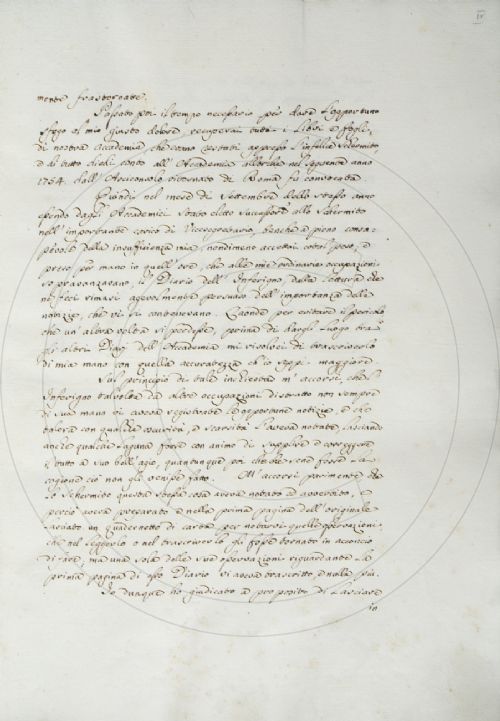 IV
mente frastornate.
Passato poi il tempo necessario per dare l'opportuno
sfogo al mio giusto dolore, recuperai tutti i Libri e fogli
di nostra Accademia che erano restati appresso l'infelice Schermito
e di tutto diedi conto all'Accademia allorchè nel seguente anno
1754. dall'Arciconsolo ritornato da Roma fù convocata.
Quindi nel mese di Settembre dello stesso anno
essendo dagli Accademici stato eletto successore allo Schermito
nell'importante carico di Vicesegretario, benchè a pieno consa-
pevole della insufficienza mia, nondimeno accettai cotal peso, e
preso per mano in quell'ore, che alle mie ordinarie occupazioni
sopravanzavano, il Diario dell'Inferigno, dalla lettura che
ne feci rimasi agevolmente persuaso dell'importanza delle
notizie, che vi si contenevano. Laonde per evitare il pericolo
che un'altra volta si perdesse, prima di dargli luogo tra
gli altri Diarj dell'Accademia mi risolvei di trascriverlo
di mia mano con quella accuratezza ch'io seppi maggiore.
Sul principio di tale incumbenza m'accorsi, che l'
Inferigno talvolta da altre occupazioni distratto non sempre
di sua mano vi aveva registrate le opportune notizie, e che
talora con qualche oscurità, e scarsità l'aveva notate, lasciando
anche qualche lacuna forse con animo di supplire e correggere
il tutto a suo bell'agio, quantunque poi che che sene fosse la
cagione ciò non gli venisse fatto. M'accorsi parimente che
lo Schermito questa stessa cosa aveva notato ed avvertito, e
perciò aveva preparato e nella prima pagina dell'originale
lasciato un quadernetto di carta per notarvi quelle osservazioni,
che nel leggerlo o nel trascriverlo gli fosse tornato in acconcio
di fare, ma una sola delle sue osservazioni riguardante la
prima pagina di esso Diario vi aveva trascritto e nulla più.
Io dunque ho giudicato a proposito di lasciare
in